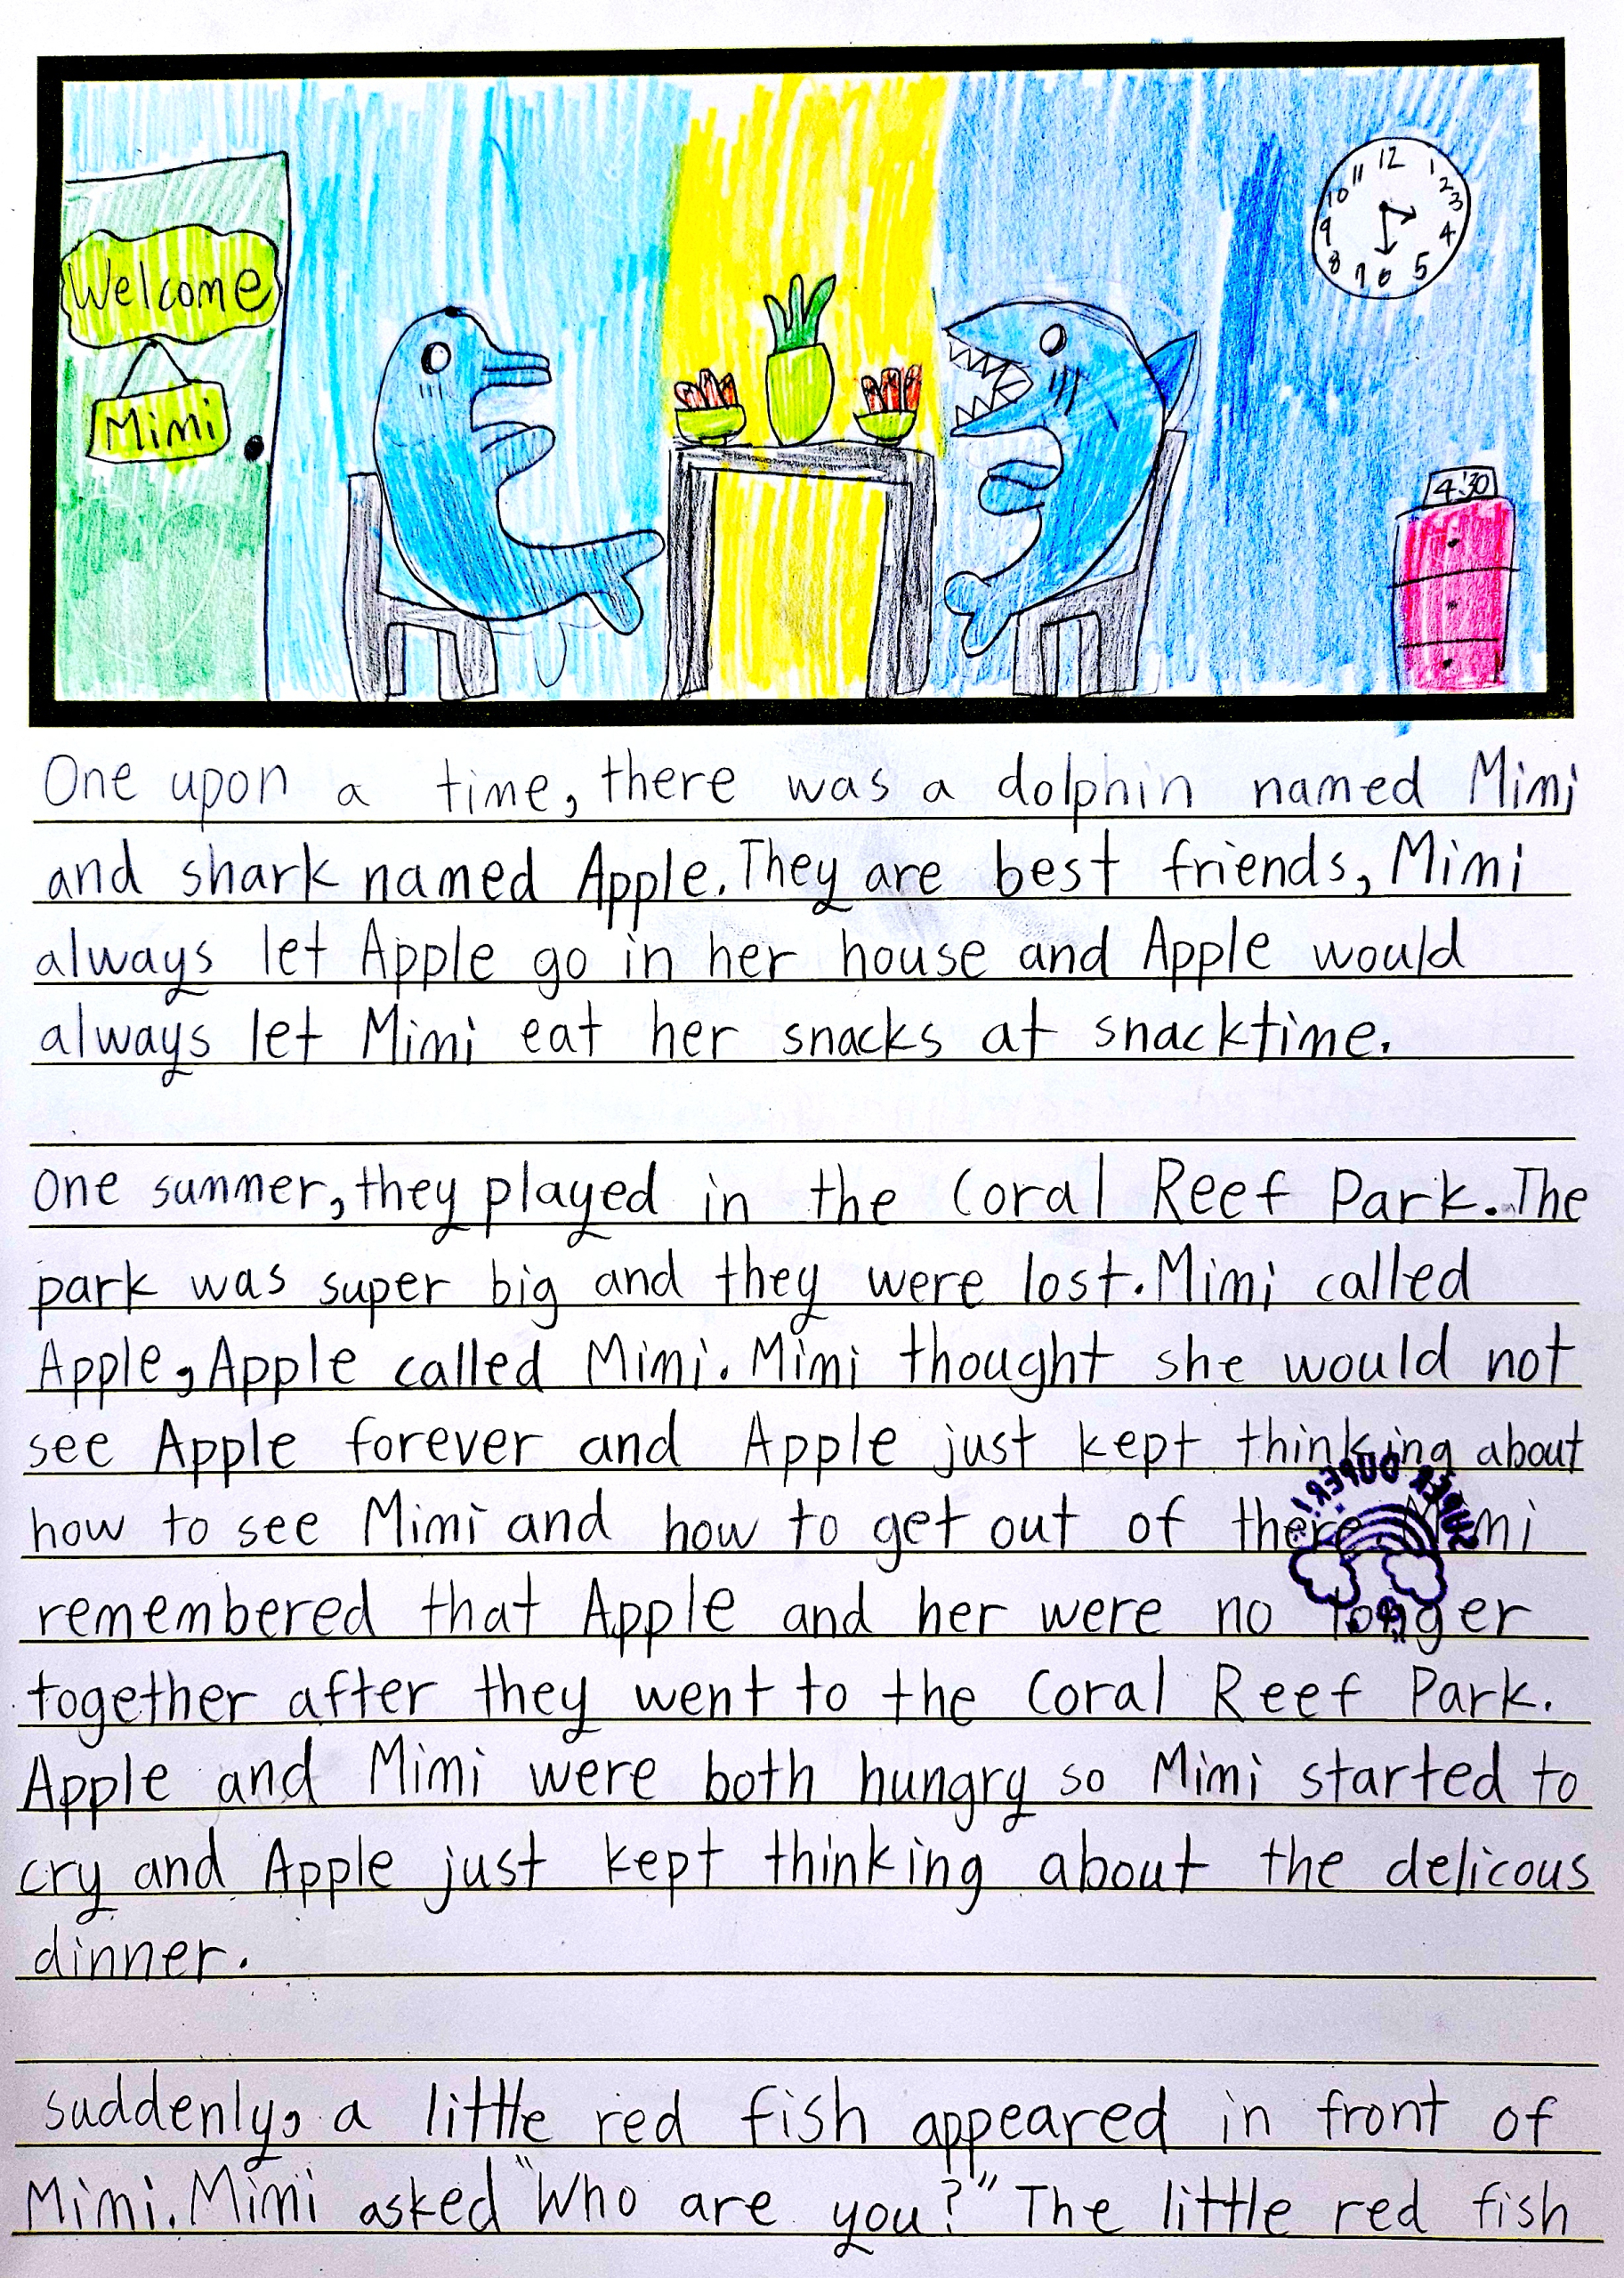 Welcome
Mimi
12
1
2
3
4
5
6
7
8
9
10
11
4:30
One upon a time, there was a dolphin named Mimi
and shark named Apple. They are best friends, Mimi
always let Apple go in her house and Apple would
always let Mimi eat her snacks at snacktime.
One summer, they played in the Coral Reef Park. The
park was super big and they were lost. Mimi called
Apple, Apple called Mimi. Mimi thought she would not
see Apple forever and Apple just kept thinking about
how to see Mimi and how to get out of there Mimi
SUPER DUPER!
remembered that Apple and her were no longer
together after they went to the Coral Reef Park.
Apple and Mimi were both hungry so Mimi started to
cry and Apple just kept thinking about the delicous
dinner.
Suddenly, a little red fish appeared in front of
Mimi. Mimi asked "Who are you?" The little red fish